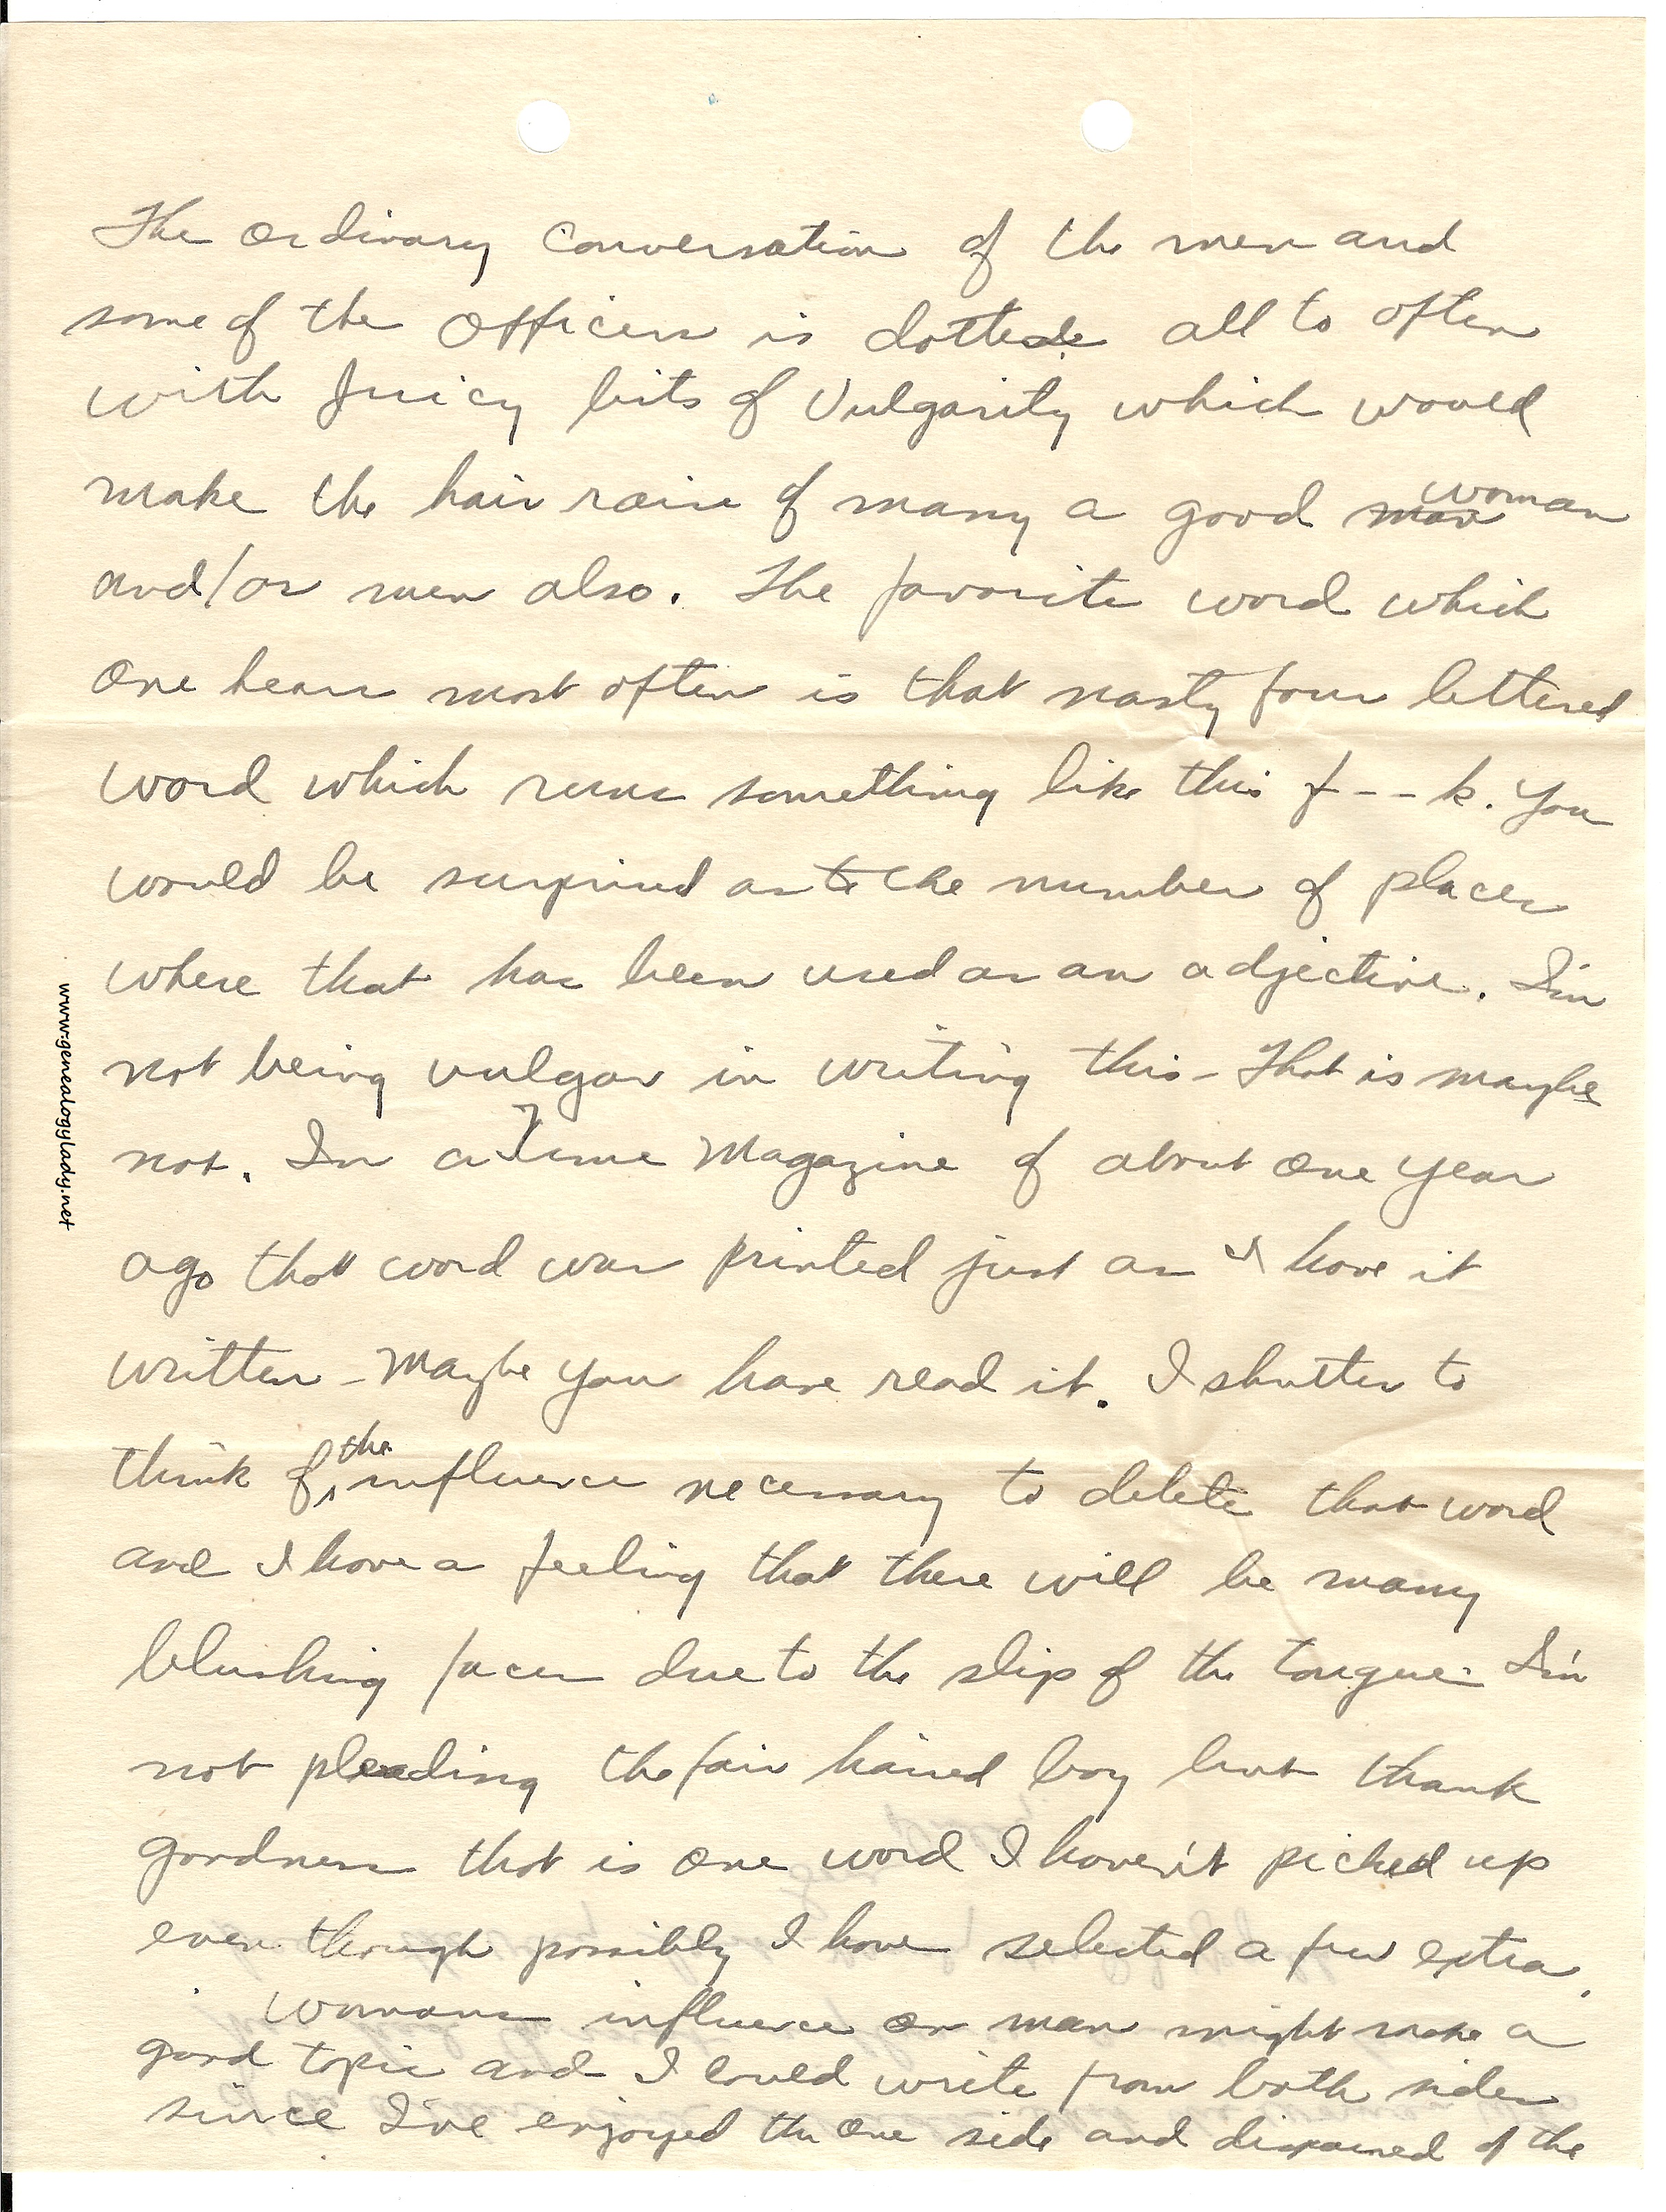 The ordinary conversation of the men and
some of the officers is dotted all to often
with juicy bits of vulgarity which would
make the hair raise of many a good man woman
and/or men also. The favorite word which
one hears most often is that nasty four lettered
word which runs something like this f--k. You
would be surprised as to the number of places
where that has been used as an adjective. I'm
not being vulgar in writing this - That is maybe
not. In a Time Magazine of about one year
ago that word was printed just as I have it
written - Maybe you have read it. I shutter to
think of the influence necessary to delete that word
and I have a feeling that there will be many
blushing faces due to the slip of the tongue. I'm
not pleading the fair haired boy but thank
goodness that is one word I haven't picked up
even though possibly I have selected a few extra.
Womans influence on man might make a
good topic and I could write from both sides
since I've enjoyed the one side and dispaired of the
www.genealogylady.net